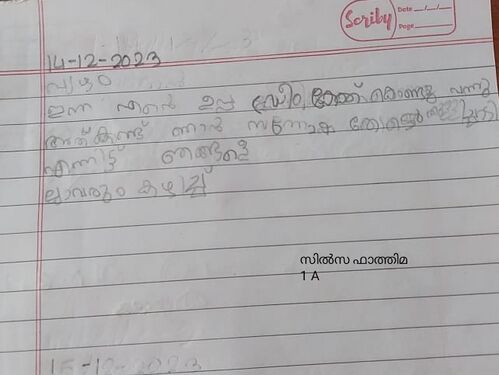 Scriby
Date __/__/__
Page
14-12-2023
വ്യാഴം
ഇന്ന് എന്റെ ഉപ്പ കൊണ്ടു വന്നു
അത്കണ്ട് ഞാൻ
എന്നിട്ട് ഞങ്ങളെ
ല്ലാവരും കഴിച്ച്
സിൽസ ഫാത്തിമ
1 A
15-12-2023